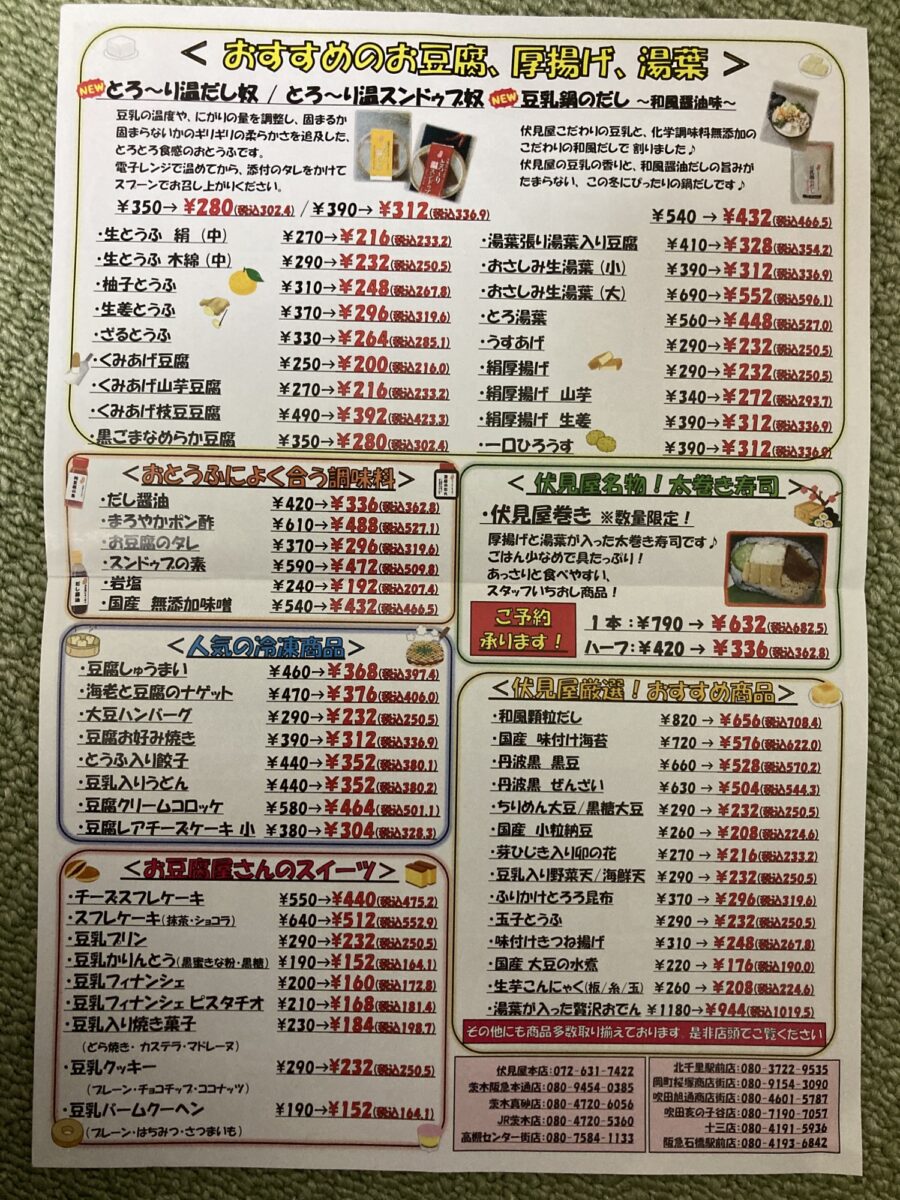 ＜ おすすめのお豆腐、厚揚げ、湯葉 ＞
NEW とろ～り温だし奴 / とろ～り温スンドゥブ奴
豆乳の温度や、にがりの量を調整し、固まるか
固まらないかのギリギリの柔らかさを追及した、
とろとろ食感のおとうふです。
電子レンジで温めてから、添付のタレをかけて
スプーンでお召し上がりください。
￥350→￥280(税込302.4) /￥390→￥312(税込336.9)
NEW 豆乳鍋のだし ～和風醤油味～
伏見屋こだわりの豆乳と、化学調味料無添加の
こだわりの和風だしで 割りました♪
伏見屋の豆乳の香りと、和風醤油だしの旨みが
たまらない、この冬にぴったりの鍋だしです♪
￥540→￥432(税込466.5)
・生とうふ 絹（中） ￥270→￥216(税込233.2)
・生とうふ 木綿（中） ￥290→￥232(税込250.5)
・柚子とうふ ￥310→￥248(税込267.8)
・生姜とうふ ￥370→￥296(税込319.6)
・ざるとうふ ￥330→￥264(税込285.1)
・くみあげ豆腐 ￥250→￥200(税込216.0)
・くみあげ山芋豆腐 ￥270→￥216(税込233.2)
・くみあげ枝豆豆腐 ￥490→￥392(税込423.3)
・黒ごまなめらか豆腐 ￥350→￥280(税込302.4)
・湯葉張り湯葉入り豆腐 ￥410→￥328(税込354.2)
・おさしみ生湯葉（小） ￥390→￥312(税込336.9)
・おさしみ生湯葉（大） ￥690→￥552(税込596.1)
・とろ湯葉 ￥560→￥448(税込527.0)
・うすあげ ￥290→￥232(税込250.5)
・絹厚揚げ ￥290→￥232(税込250.5)
・絹厚揚げ 山芋 ￥340→￥272(税込293.7)
・絹厚揚げ 生姜 ￥390→￥312(税込336.9)
・一口ひろうす ￥390→￥312(税込336.9)
＜おとうふによく合う調味料＞
・だし醤油 ￥420→￥336(税込362.8)
・まろやかポン酢 ￥610→￥488(税込527.1)
・お豆腐のタレ ￥370→￥296(税込319.6)
・スンドゥブの素 ￥590→￥472(税込509.8)
・岩塩 ￥240→￥192(税込207.4)
・国産 無添加味噌 ￥540→￥432(税込466.5)
だし醤油
＜人気の冷凍商品＞
・豆腐しゅうまい ￥460→￥368(税込397.4)
・海老と豆腐のナゲット ￥470→￥376(税込406.0)
・大豆ハンバーグ ￥290→￥232(税込250.5)
・豆腐お好み焼き ￥390→￥312(税込336.9)
・とうふ入り餃子 ￥440→￥352(税込380.1)
・豆乳入りうどん ￥440→￥352(税込380.2)
・豆腐クリームコロッケ ￥580→￥464(税込501.1)
・豆腐レアチーズケーキ 小 ￥380→￥304(税込328.3)
＜お豆腐屋さんのスイーツ＞
・チーズスフレケーキ ￥550→￥440(税込475.2)
・スフレケーキ(抹茶・ショコラ) ￥640→￥512(税込552.9)
・豆乳プリン ￥290→￥232(税込250.5)
・豆乳かりんとう(黒蜜きな粉・黒糖) ￥190→￥152(税込164.1)
・豆乳フィナンシェ ￥200→￥160(税込172.8)
・豆乳フィナンシェ ピスタチオ ￥210→￥168(税込181.4)
・豆乳入り焼き菓子 ￥230→￥184(税込198.7)
(どら焼き・カステラ・マドレーヌ)
・豆乳クッキー ￥290→￥232(税込250.5)
(プレーン・チョコチップ・ココナッツ)
・豆乳バームクーヘン ￥190→￥152(税込164.1)
(プレーン・はちみつ・さつまいも)
＜ 伏見屋名物！太巻き寿司 ＞
・伏見屋巻き ※数量限定！
厚揚げと湯葉が入った太巻き寿司です♪
ごはん少なめで具たっぷり！
あっさりと食べやすい、
スタッフいちおし商品！
ご予約
承ります！
1本：￥790 → ￥632(税込682.5)
ハーフ：￥420 → ￥336(税込362.8)
＜伏見屋厳選！おすすめ商品＞
・和風顆粒だし ￥820 → ￥656(税込708.4)
・国産 味付け海苔 ￥720 → ￥576(税込622.0)
・丹波黒 黒豆 ￥660 → ￥528(税込570.2)
・丹波黒 ぜんざい ￥630 → ￥504(税込544.3)
・ちりめん大豆/黒糖大豆 ￥290 → ￥232(税込250.5)
・国産 小粒納豆 ￥260 → ￥208(税込224.6)
・芽ひじき入り卯の花 ￥270 → ￥216(税込233.2)
・豆乳入り野菜天/海鮮天 ￥290 → ￥232(税込250.5)
・ふりかけとろろ昆布 ￥370 → ￥296(税込319.6)
・玉子とうふ ￥290 → ￥232(税込250.5)
・味付けきつね揚げ ￥310 → ￥248(税込267.8)
・国産 大豆の水煮 ￥220 → ￥176(税込190.0)
・生芋こんにゃく(板/糸/玉) ￥260 → ￥208(税込224.6)
・湯葉が入った贅沢おでん ￥1180→￥944(税込1019.5)
その他にも商品多数取り揃えております 是非店頭でご覧ください
伏見屋本店：072-631-7422
茨木阪急本通店：080-9454-0385
茨木真砂店：080-4720-6056
JR茨木店：080-4720-5360
高槻センター街店：080-7584-1133
北千里駅前店：080-3722-9535
岡町桜塚商店街店：080-9154-3090
吹田旭通商店街店：080-4601-5787
吹田亥の子谷店：080-7190-7057
十三店：080-4191-5936
阪急石橋駅前店：080-4193-6842